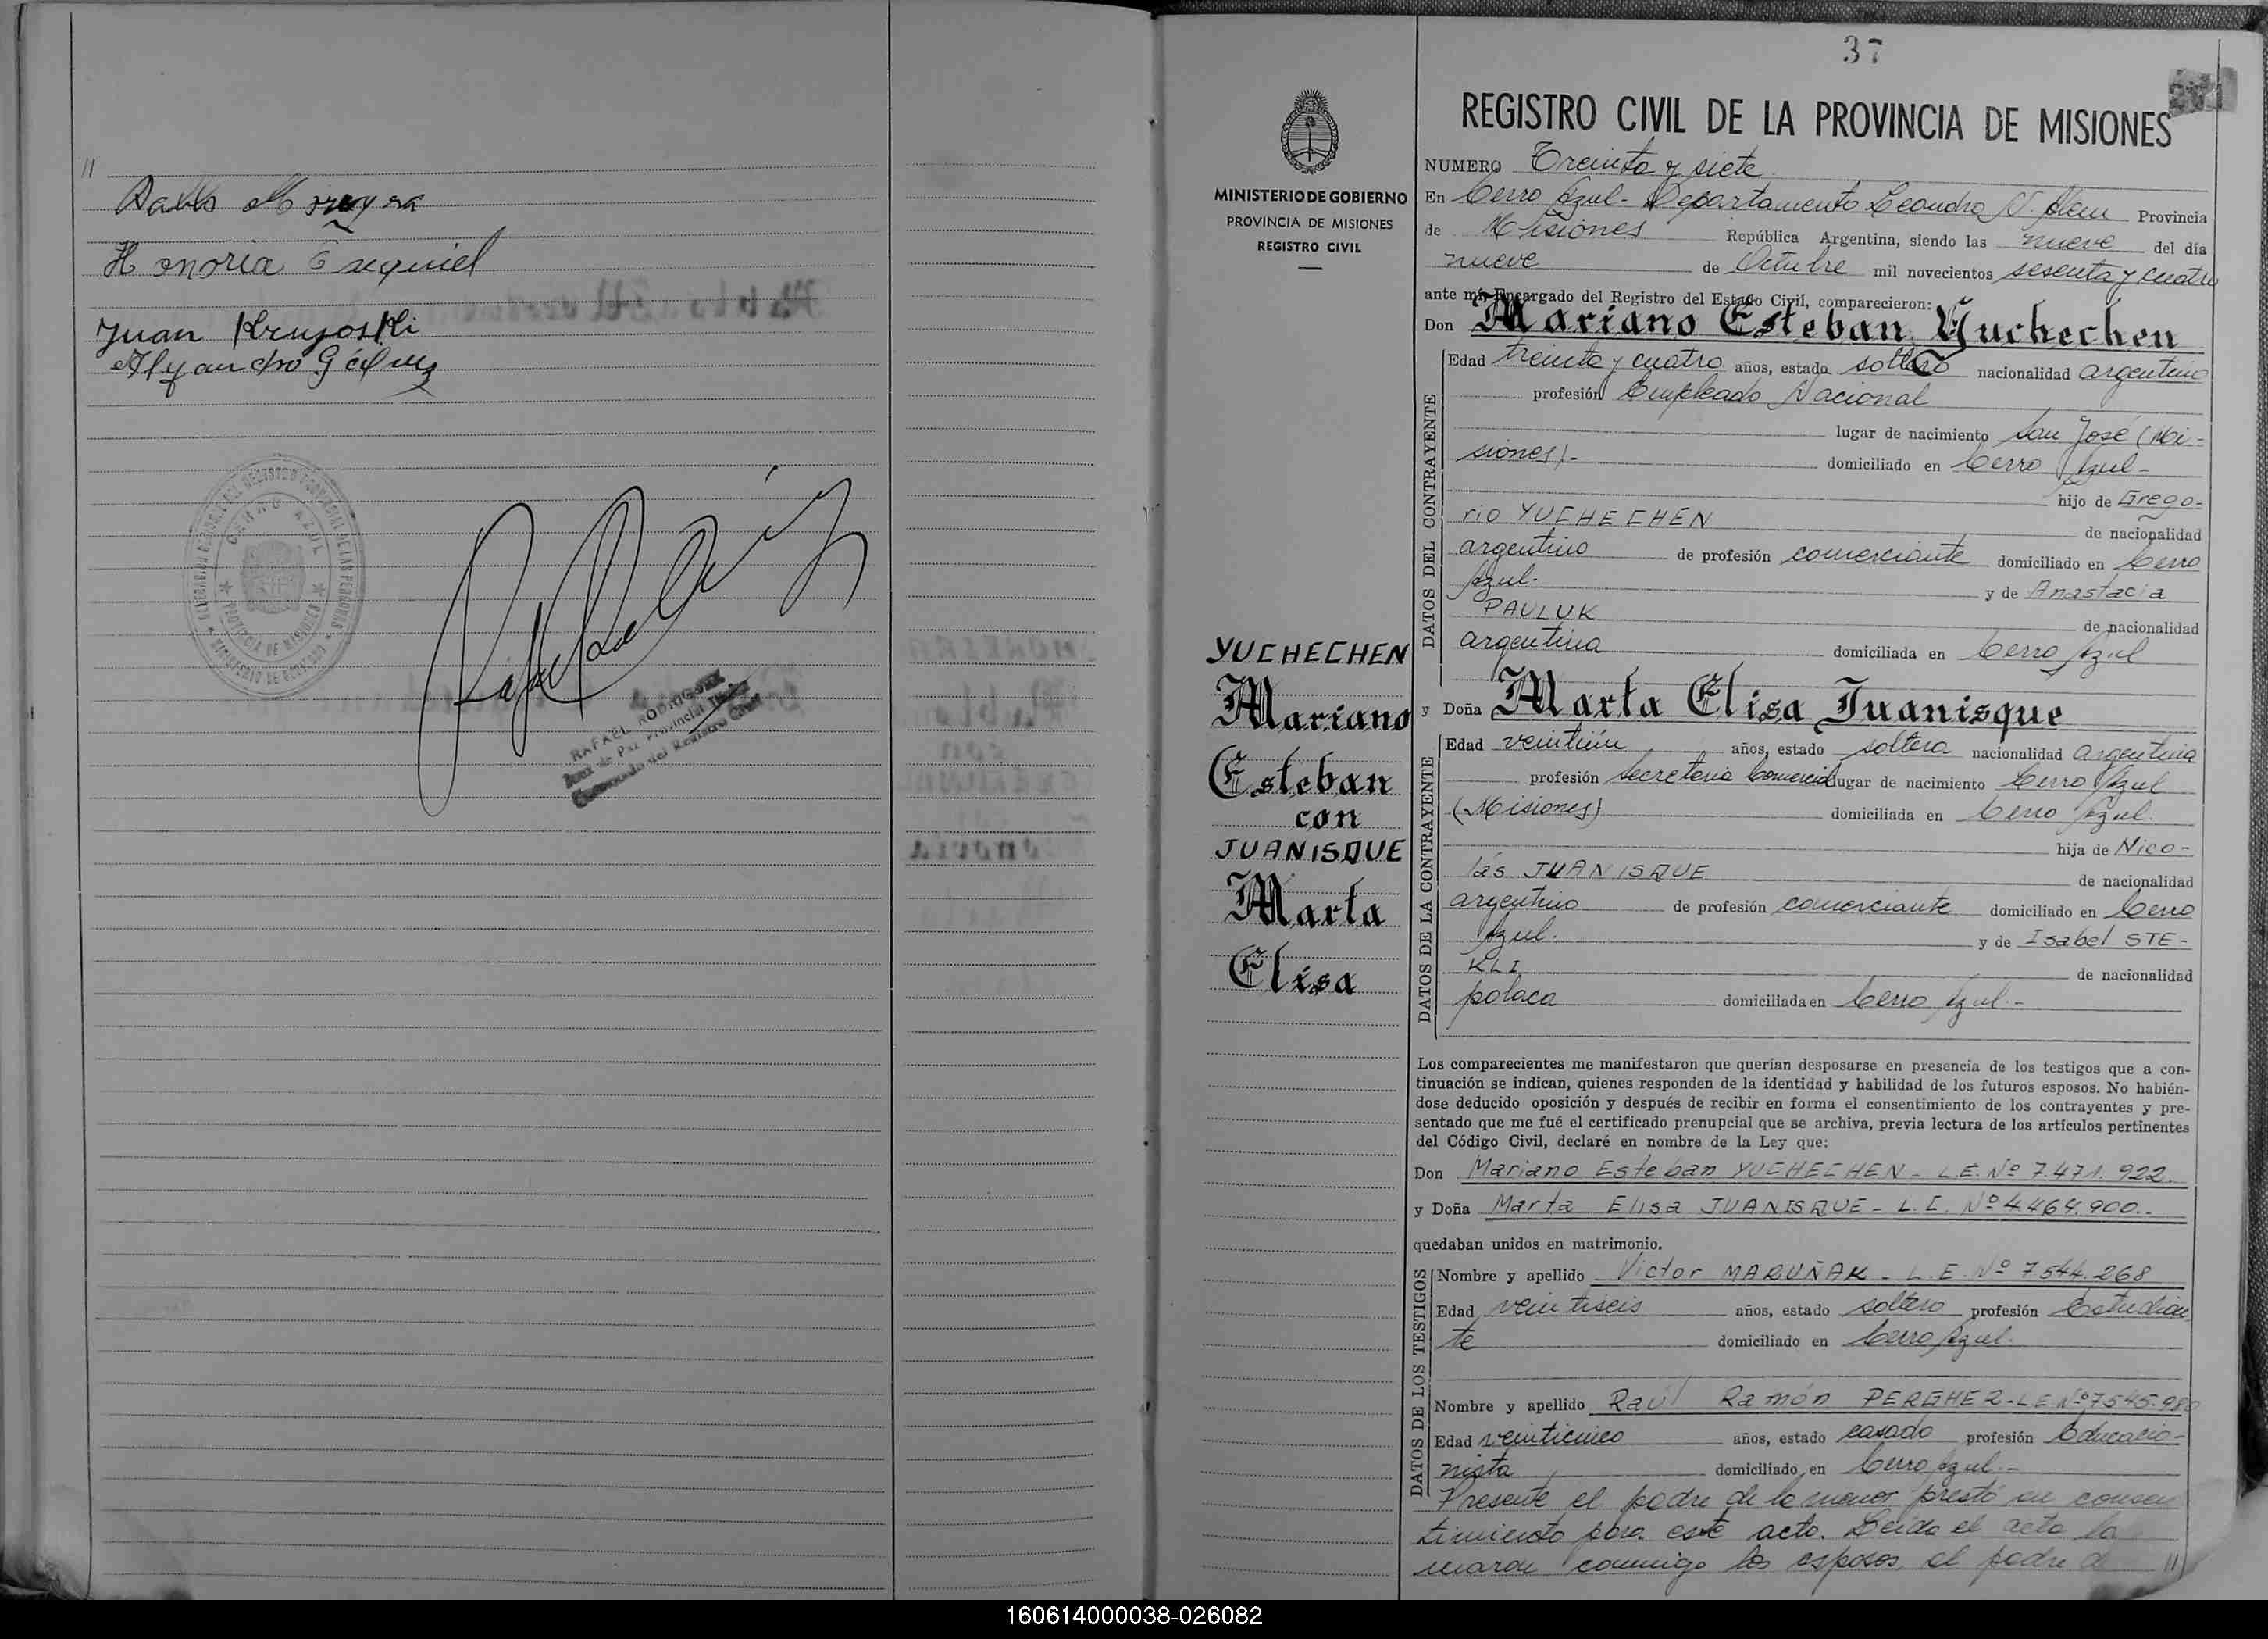 //
Pablo Moreyra
Honoria Esequiel
Juan Krujoski
RAFAEL RODRIGUEZ
Juez de Paz Provincial
Encargado del Registro Civil
CERRO AZUL
PROVINCIA DE MISIONES
MINISTERIO DE GOBIERNO
37
MINISTERIO DE GOBIERNO
PROVINCIA DE MISIONES
REGISTRO CIVIL
YUCHECHEN
Mariano
Esteban
con
JUANISQUE
Marta
Elisa
REGISTRO CIVIL DE LA PROVINCIA DE MISIONES
NUMERO Treinta y siete
En Cerro Azul - Departamento Leandro N. Alem Provincia
de Misiones República Argentina, siendo las nueve del día
nueve de Octubre mil novecientos sesenta y cuatro
ante mí Encargado del Registro del Estado Civil, comparecieron:
Don Mariano Esteban Yuchechen
DATOS DEL CONTRAYENTE
Edad treinta y cuatro años, estado soltero nacionalidad argentino
profesión Empleado Nacional
lugar de nacimiento San José (Mi-
siones).- domiciliado en Cerro Azul-
hijo de Grego-
rio YUCHECHEN de nacionalidad
argentino de profesión comerciante domiciliado en Cerro
Azul. y de Anastacia
PAULUK de nacionalidad
argentina domiciliada en Cerro Azul
y Doña Marta Elisa Juanisque
DATOS DE LA CONTRAYENTE
Edad veintiún años, estado soltera nacionalidad argentina
profesión Secretaria Comercial lugar de nacimiento Cerro Azul
(Misiones) domiciliada en Cerro Azul.
hija de Nico-
lás JUANISQUE de nacionalidad
argentino de profesión comerciante domiciliado en Cerro
Azul. y de Isabel STE-
KLI de nacionalidad
polaca domiciliada en Cerro Azul.-
Los comparecientes me manifestaron que querían desposarse en presencia de los testigos que a con-
tinuación se indican, quienes responden de la identidad y habilidad de los futuros esposos. No habién-
dose deducido oposición y después de recibir en forma el consentimiento de los contrayentes y pre-
sentado que me fué el certificado prenupcial que se archiva, previa lectura de los artículos pertinentes
del Código Civil, declaré en nombre de la Ley que:
Don Mariano Esteban YUCHECHEN - L.E. Nº 7.471.922.
y Doña Marta Elisa JUANISQUE - L.C. Nº 4.464.900.-
quedaban unidos en matrimonio.
DATOS DE LOS TESTIGOS
Nombre y apellido Victor MARUÑAK - L.E. Nº 7.544.268
Edad veintiseis años, estado soltero profesión Estudian
te domiciliado en Cerro Azul.
Nombre y apellido Raúl Ramón PERGHER - L.E. Nº 7.545.980
Edad veinticinco años, estado casado profesión Educacio-
nista domiciliado en Cerro Azul.-
Presente el padre de la menor prestó su consen
timiento para este acto. Leída el acta la
maron conmigo los esposos, el padre d //
160614000038-026082